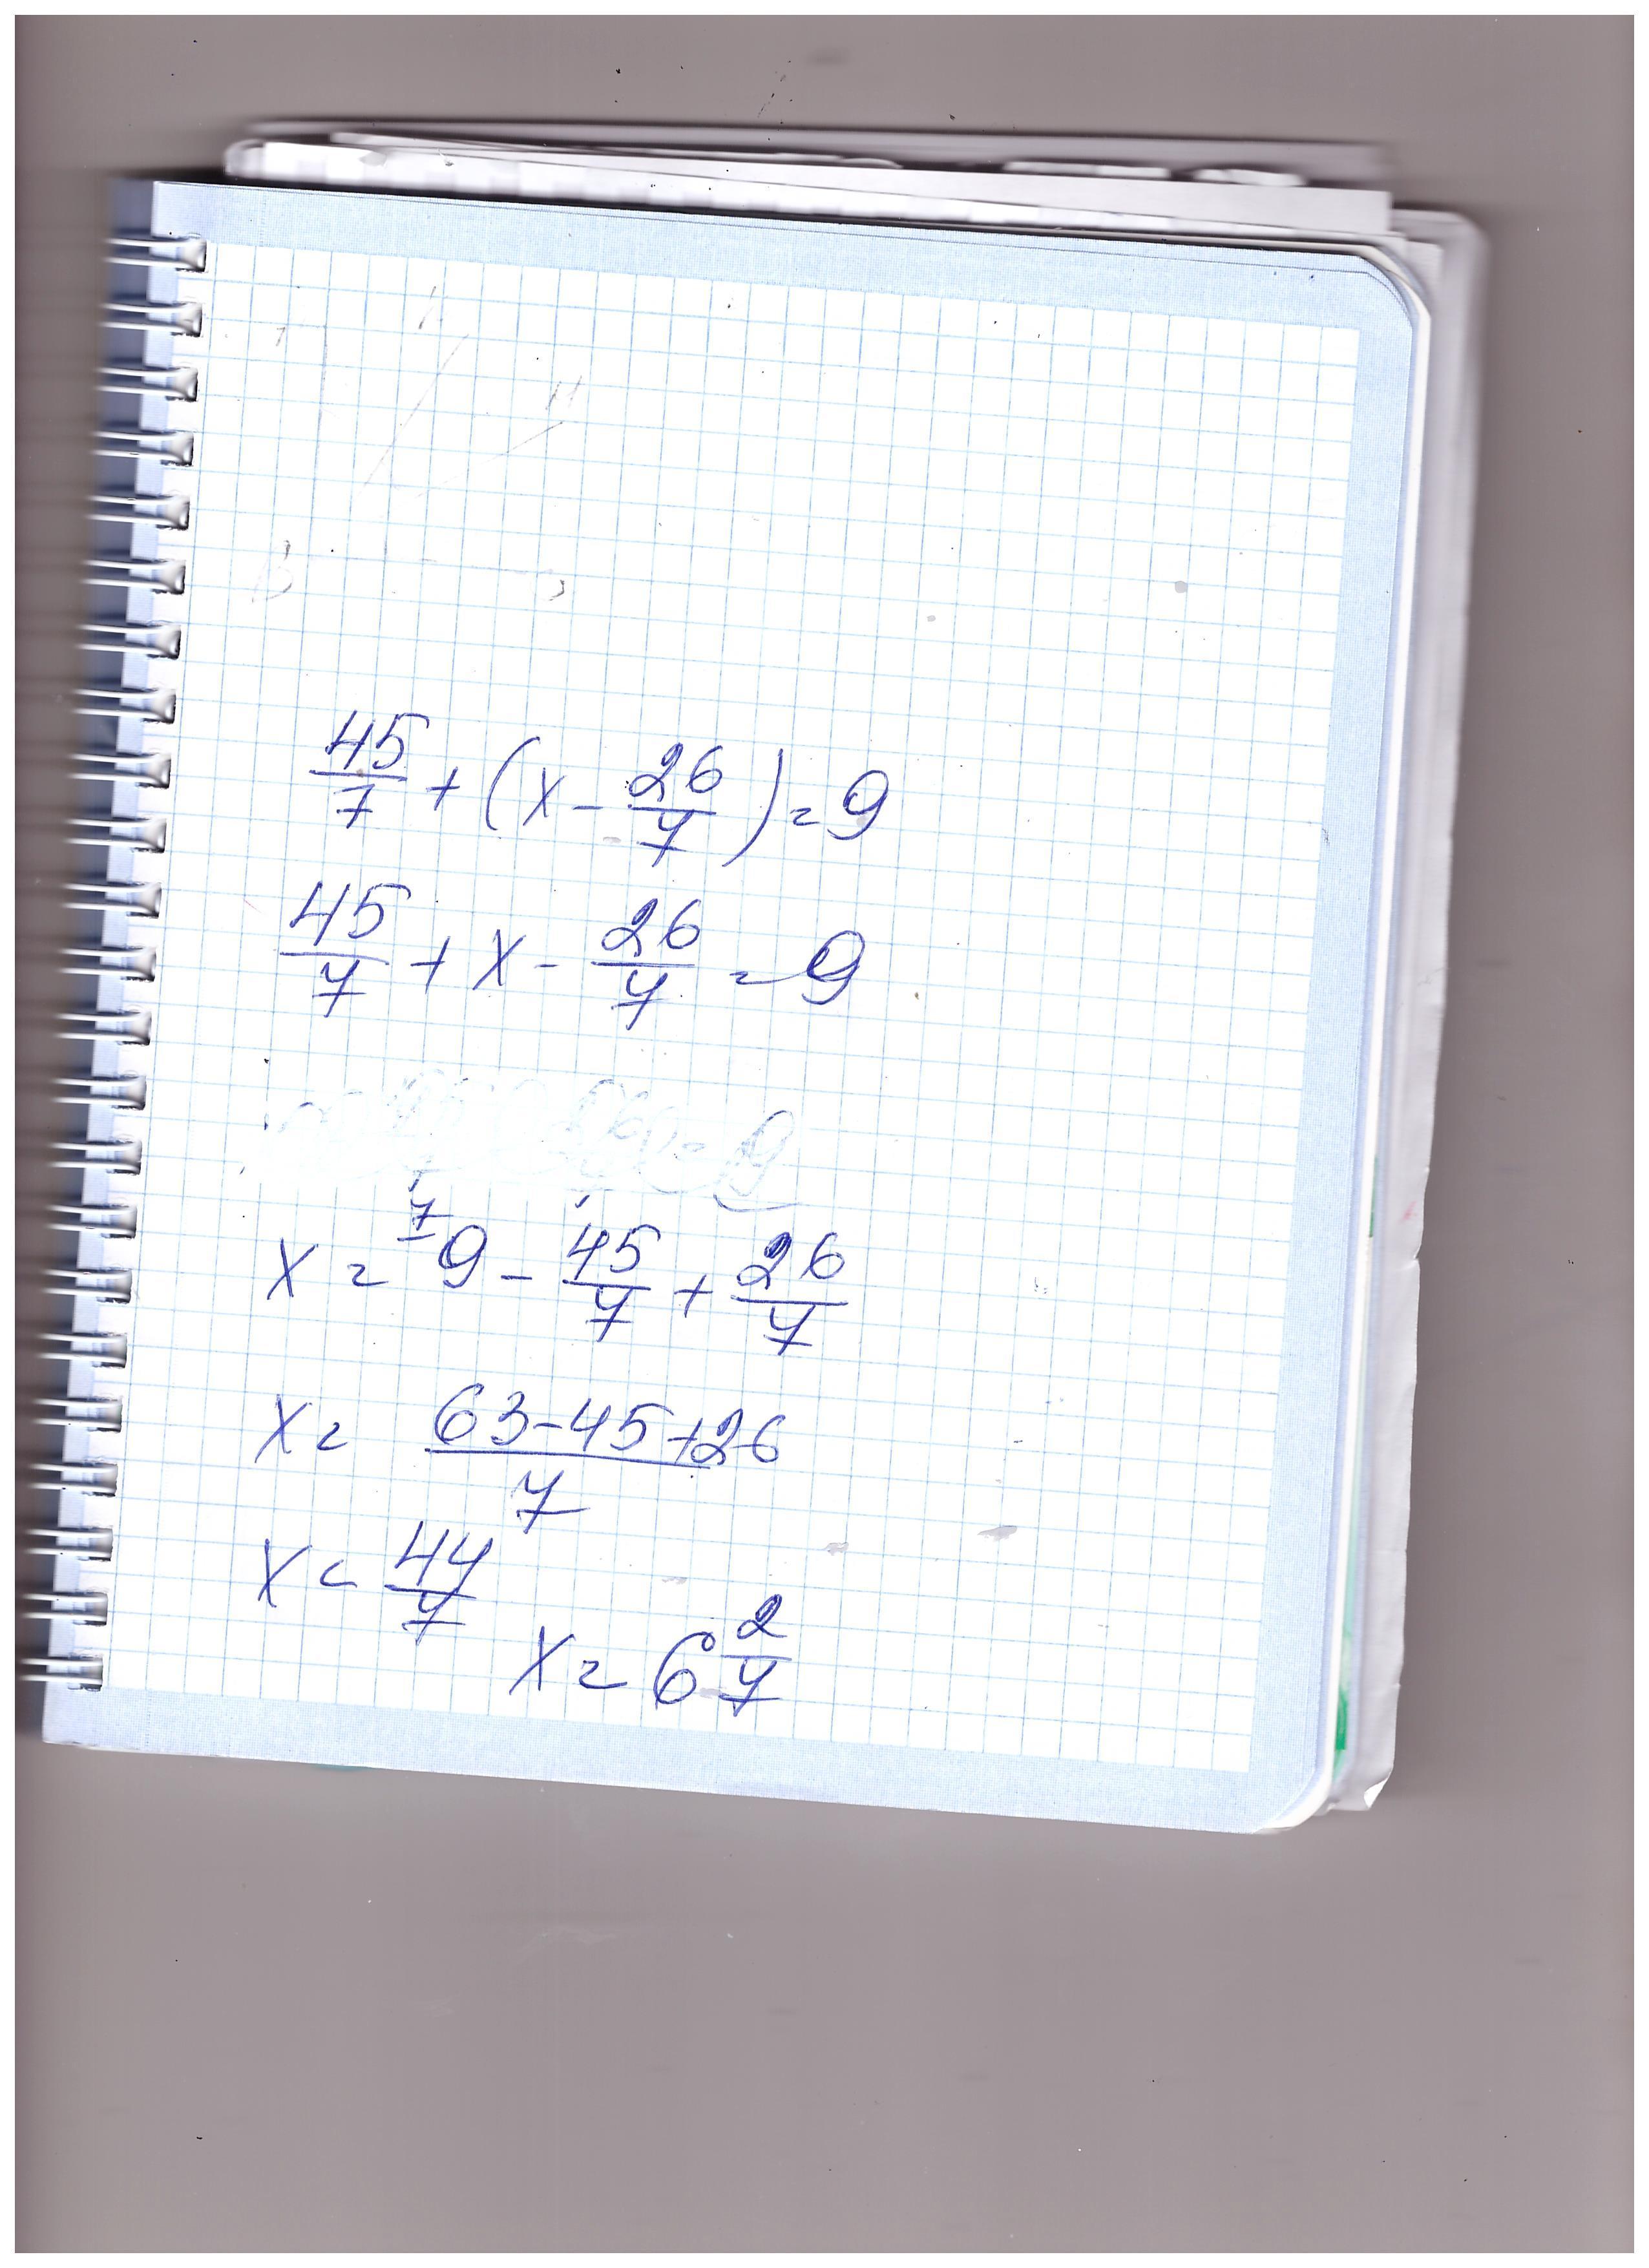 45/7 + (x - 26/7) = 9
45/7 + x - 26/7 = 9
x = 7 9 - 45/7 + 26/7
x = 63-45+26/7
x = 44/7
x = 6 2/7